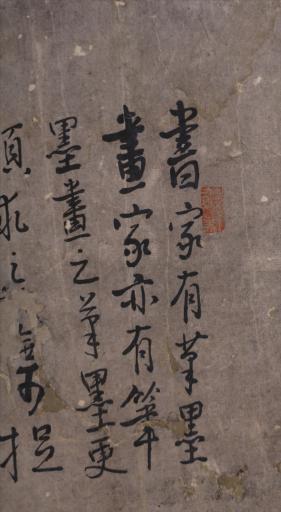 書家有筆墨
畫家亦有筆
墨畫之筆墨更
須求之